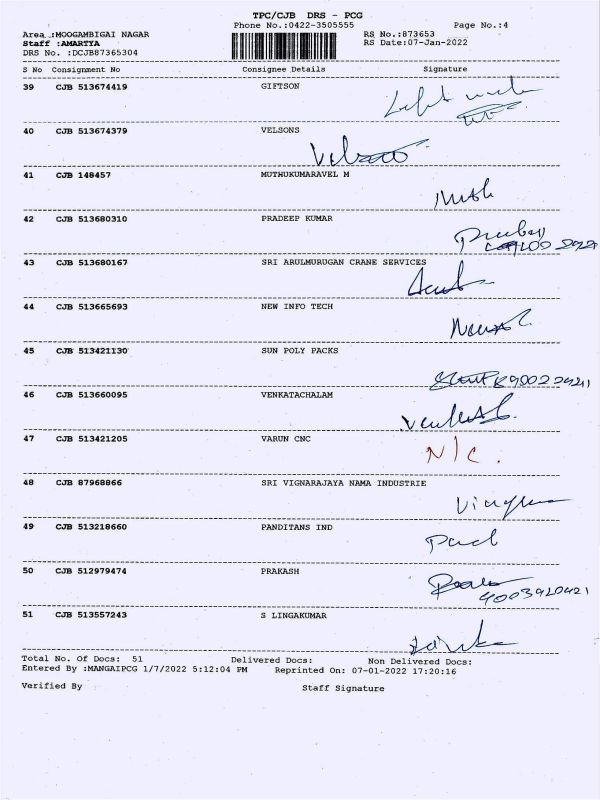 TPC/CJB DRS - PCG
Phone No.:0422-3505555 Page No.:4
Area :MOOGAMBIGAI NAGAR RS No.:873653
Staff :AMARTYA RS Date:07-Jan-2022
DRS No. :DCJB87365304
S No Consignment No Consignee Details Signature
39 CJB 513674419 GIFTSON
40 CJB 513674379 VELSONS
41 CJB 148457 MUTHUKUMARAVEL M
42 CJB 513680310 PRADEEP KUMAR
43 CJB 513680167 SRI ARULMURUGAN CRANE SERVICES
44 CJB 513665693 NEW INFO TECH
45 CJB 513421130 SUN POLY PACKS
46 CJB 513660095 VENKATACHALAM
47 CJB 513421205 VARUN CNC
N/C.
48 CJB 87968866 SRI VIGNARAJAYA NAMA INDUSTRIE
49 CJB 513218660 PANDITANS IND
50 CJB 512979474 PRAKASH
51 CJB 513557243 S LINGAKUMAR
Total No. Of Docs: 51 Delivered Docs: Non Delivered Docs:
Entered By :MANGAIPCG 1/7/2022 5:12:04 PM Reprinted On: 07-01-2022 17:20:16
Verified By Staff Signature